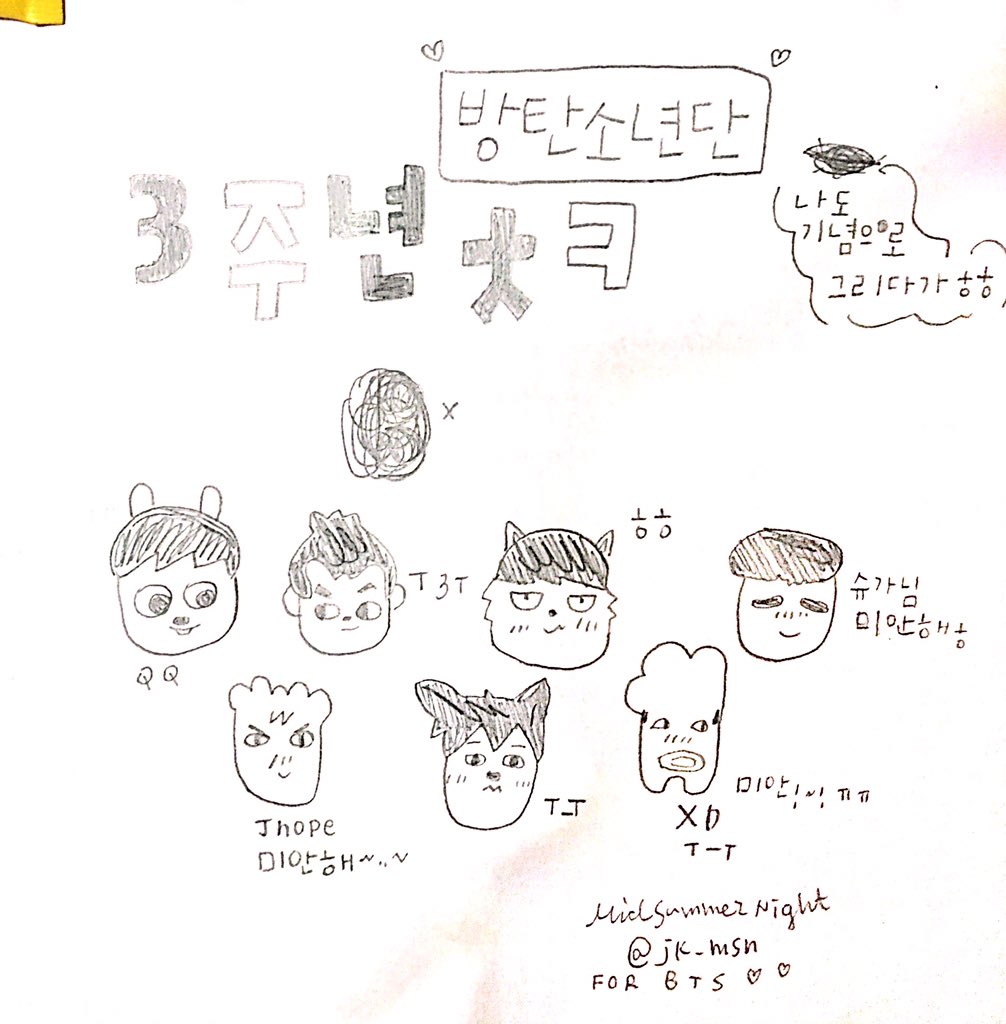 방탄소년단
3주년 ㅊㅋ
나도
기념으로
그리다가 ㅎㅎ
X
ㅎㅎ
T3T
슈가님
미안해ㅎ
QQ
Jhope
미안해~..~
T_T
미안!~! ㅠㅠ
XD
T-T
MidSummer Night
@jk_msn
FOR BTS ♡ ♡